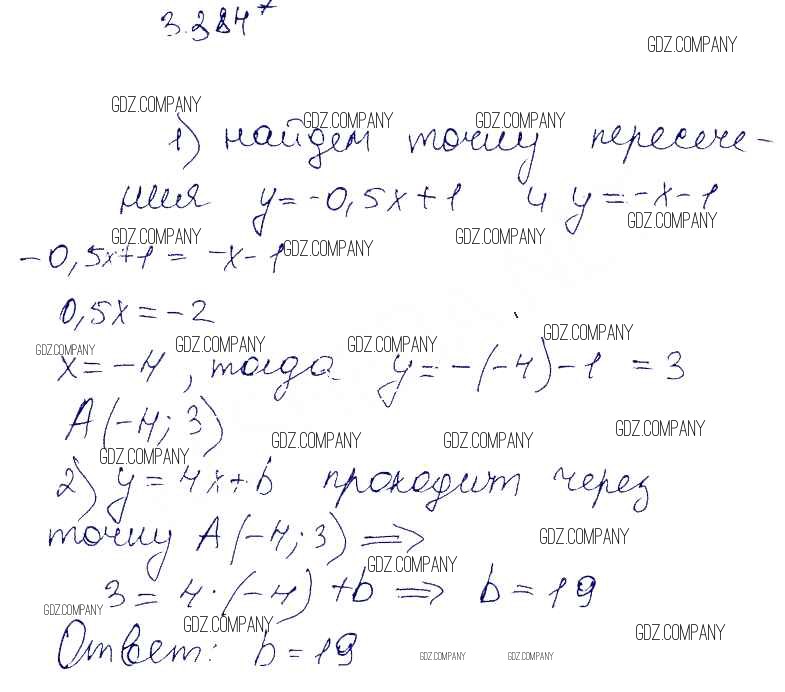 3.284*
GDZ.COMPANY
GDZ.COMPANY GDZ.COMPANY GDZ.COMPANY
1) найдем точку пересече-
ния y=-0,5x+1 и y=-x-1
GDZ.COMPANY
GDZ.COMPANY GDZ.COMPANY GDZ.COMPANY
-0,5x+1=-x-1
0,5x=-2
GDZ.COMPANY
GDZ.COMPANY GDZ.COMPANY GDZ.COMPANY
x=-4, тогда y=-(-4)-1=3
A(-4;3)
GDZ.COMPANY GDZ.COMPANY GDZ.COMPANY
GDZ.COMPANY
2) y=4x+b проходит через
точку A(-4;3) =>
GDZ.COMPANY
GDZ.COMPANY
3=4·(-4)+b => b=19
GDZ.COMPANY
GDZ.COMPANY GDZ.COMPANY
Ответ: b=19
GDZ.COMPANY GDZ.COMPANY